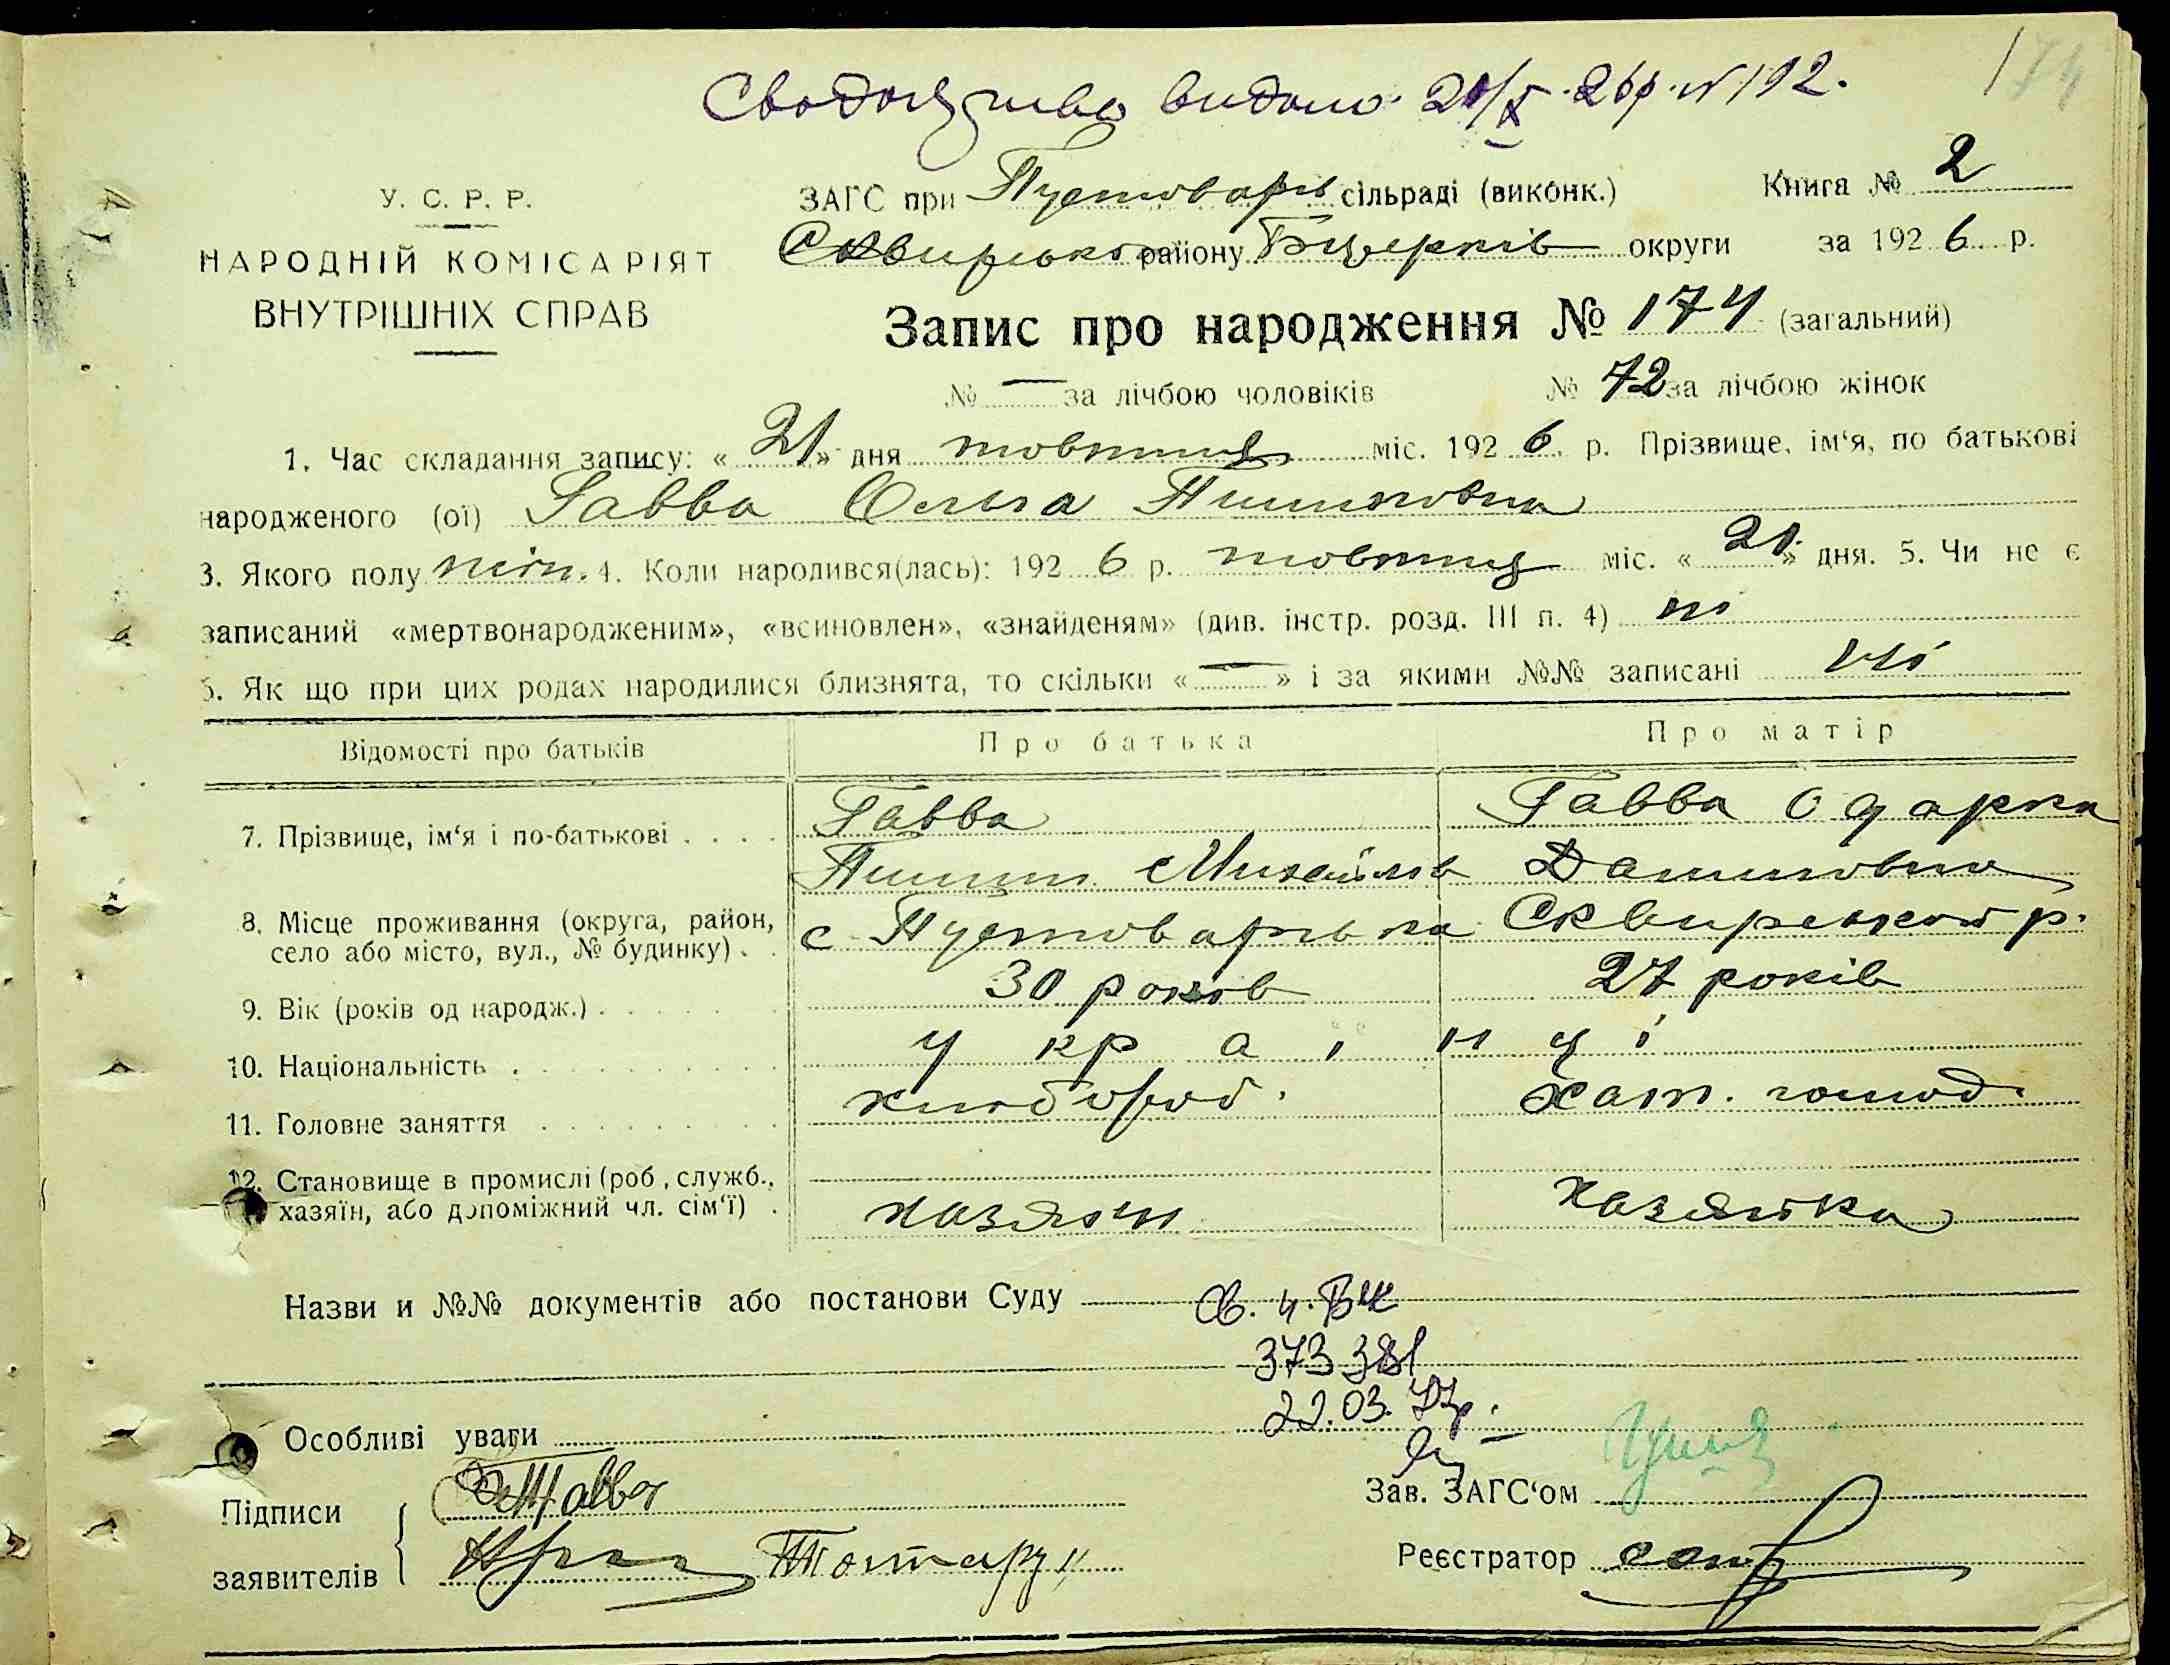 видано 26 р. № 192.
174
У. С. Р. Р.
НАРОДНІЙ КОМІСАРІЯТ
ВНУТРІШНІХ СПРАВ
ЗАГС при Пустоварів сільраді (виконк.) Книга № 2
Сквирсько району Бцерків округи за 192 6 р.
Запис про народження № 174 (загальний)
№ — за лічбою чоловіків № 72 за лічбою жінок
1. Час складання запису: « 21 » дня жовтня міс. 192 6 р. Прізвище, ім‘я, по батькові
народженого (ої) Гавва Ольга Пилиповна
3. Якого полу жін. 4. Коли народився(лась): 192 6 р. жовтня міс. « 20 » дня. 5. Чи не є
записаний «мертвонародженим», «всиновлен», «знайденям» (див. інстр. розд. III п. 4) ні
6. Як що при цих родах народилися близнята, то скільки « — » і за якими №№ записані ні
Відомості про батьків Про батька Про матір
7. Прізвище, ім‘я і по-батькові Гавва Гавва Одарка
Пилип Михайлов Даниловна
8. Місце проживання (округа, район, с Пустоварівка Сквирської р.
село або місто, вул., № будинку)
9. Вік (років од народж.) 30 років 27 років
10. Національність у к р а ї н ц і
11. Головне заняття хлібороб. хатн. господ.
12. Становище в промислі (роб., служб.,
хазяїн, або допоміжний чл. сім‘ї) хазяїн хазяйка
Назви и №№ документів або постанови Суду Св. ч. ВК
373381
22.03. 77р.
Особливі уваги
Підписи Гавва
Зав. ЗАГС‘ом
заявителів
Реєстратор